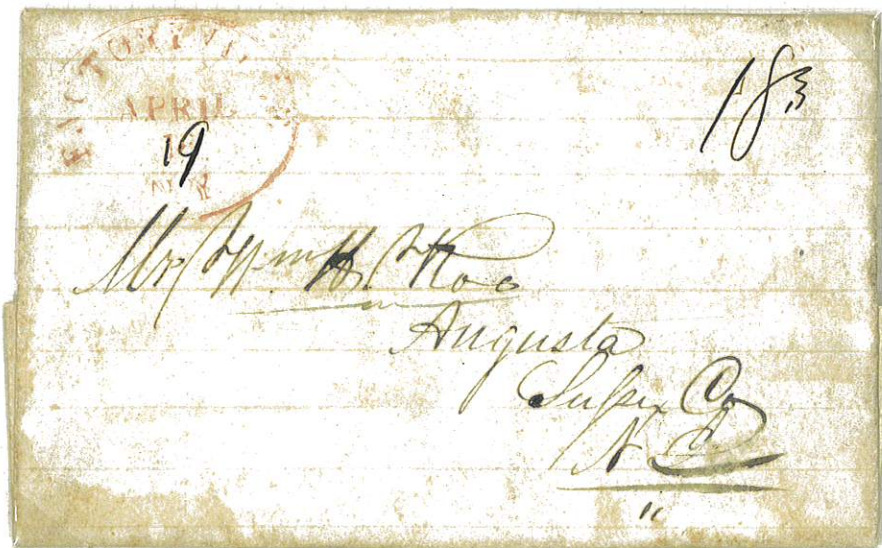 FACTORYVILLE
APRIL
19
N.Y
18¾
Mr. Wm. H. Roe
Augusta
Sussex Co
N. J.